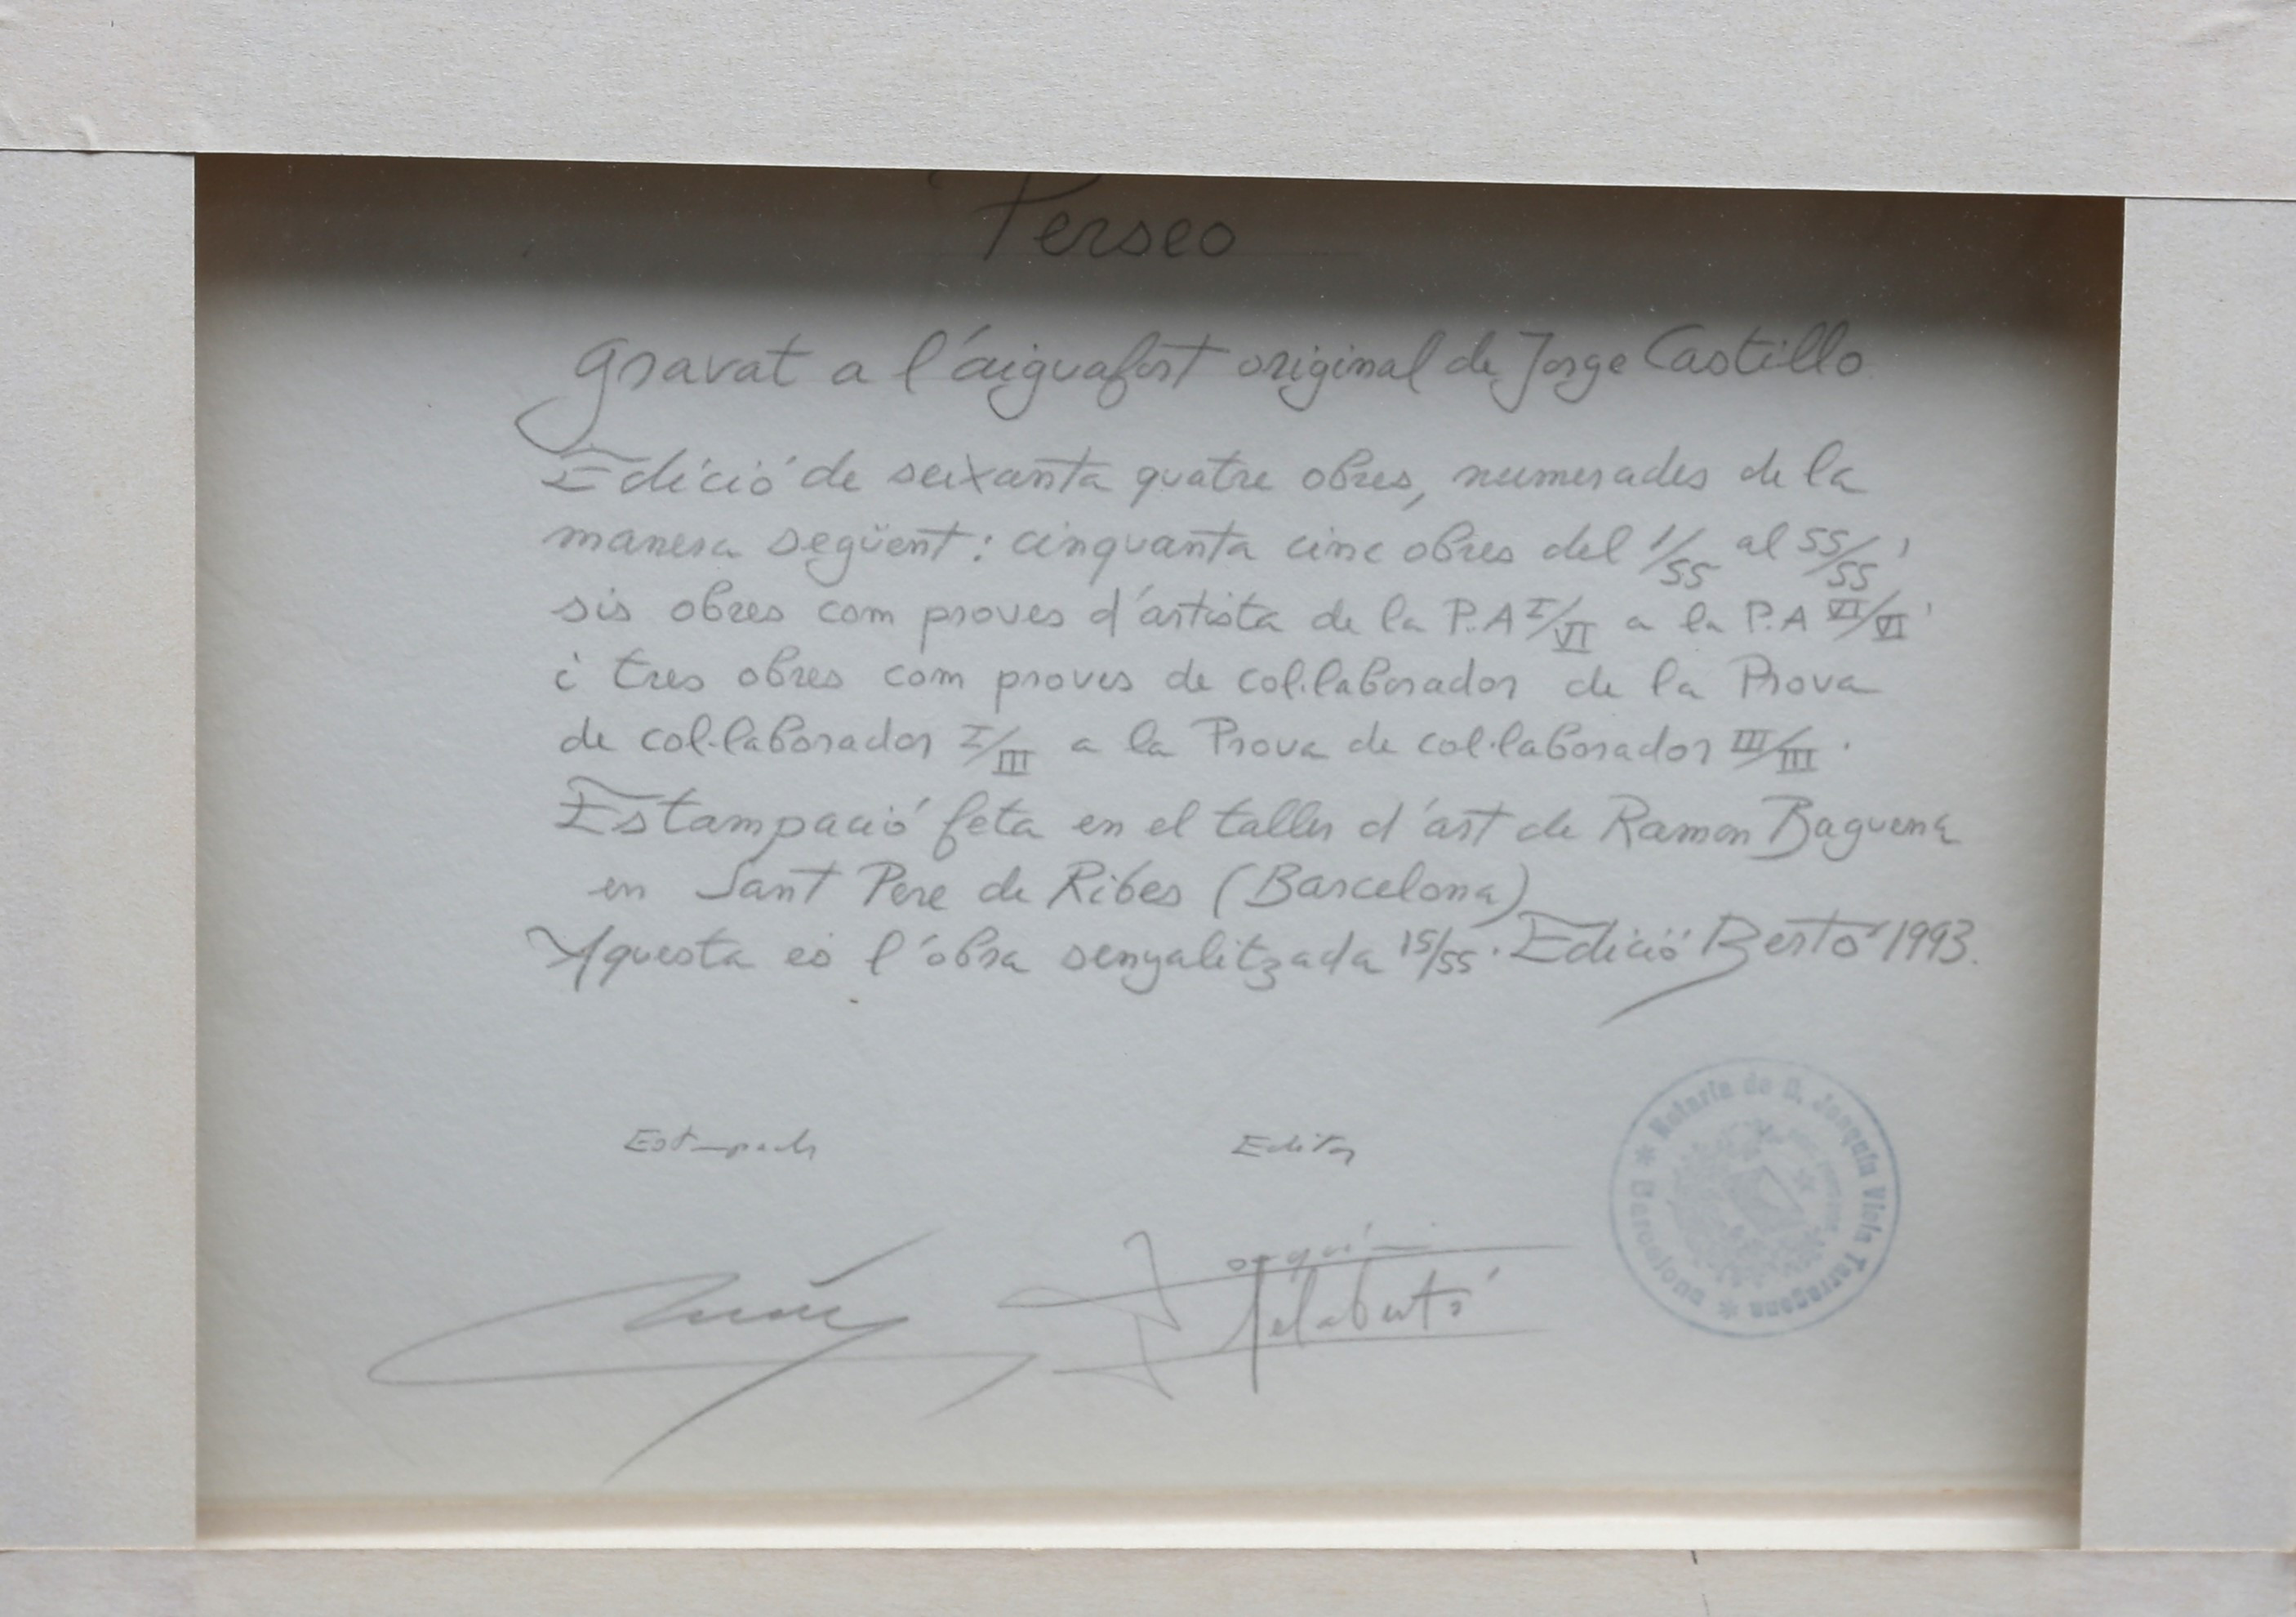 Perseo
Gravat a l'aiguafort original de Jorge Castillo
Edició de seixanta quatre obres, numerades de la
manera següent: cinquanta cinc obres del 1/55 al 55/55,
sis obres com proves d'artista de la P.A I/VI a la P.A VI/VI,
i tres obres com proves de col·laborador de la Prova
de col·laborador I/III a la Prova de col·laborador III/III.
Estampació feta en el taller d'art de Ramon Baguena
en Sant Pere de Ribes (Barcelona)
Aquesta es l'obra senyalitzada 15/55. Edició Bertó 1993.
Estampador
Editor
Joaquín
Gelabertó
* Notaría de D. Joaquín Viola Tarragona * Barcelona